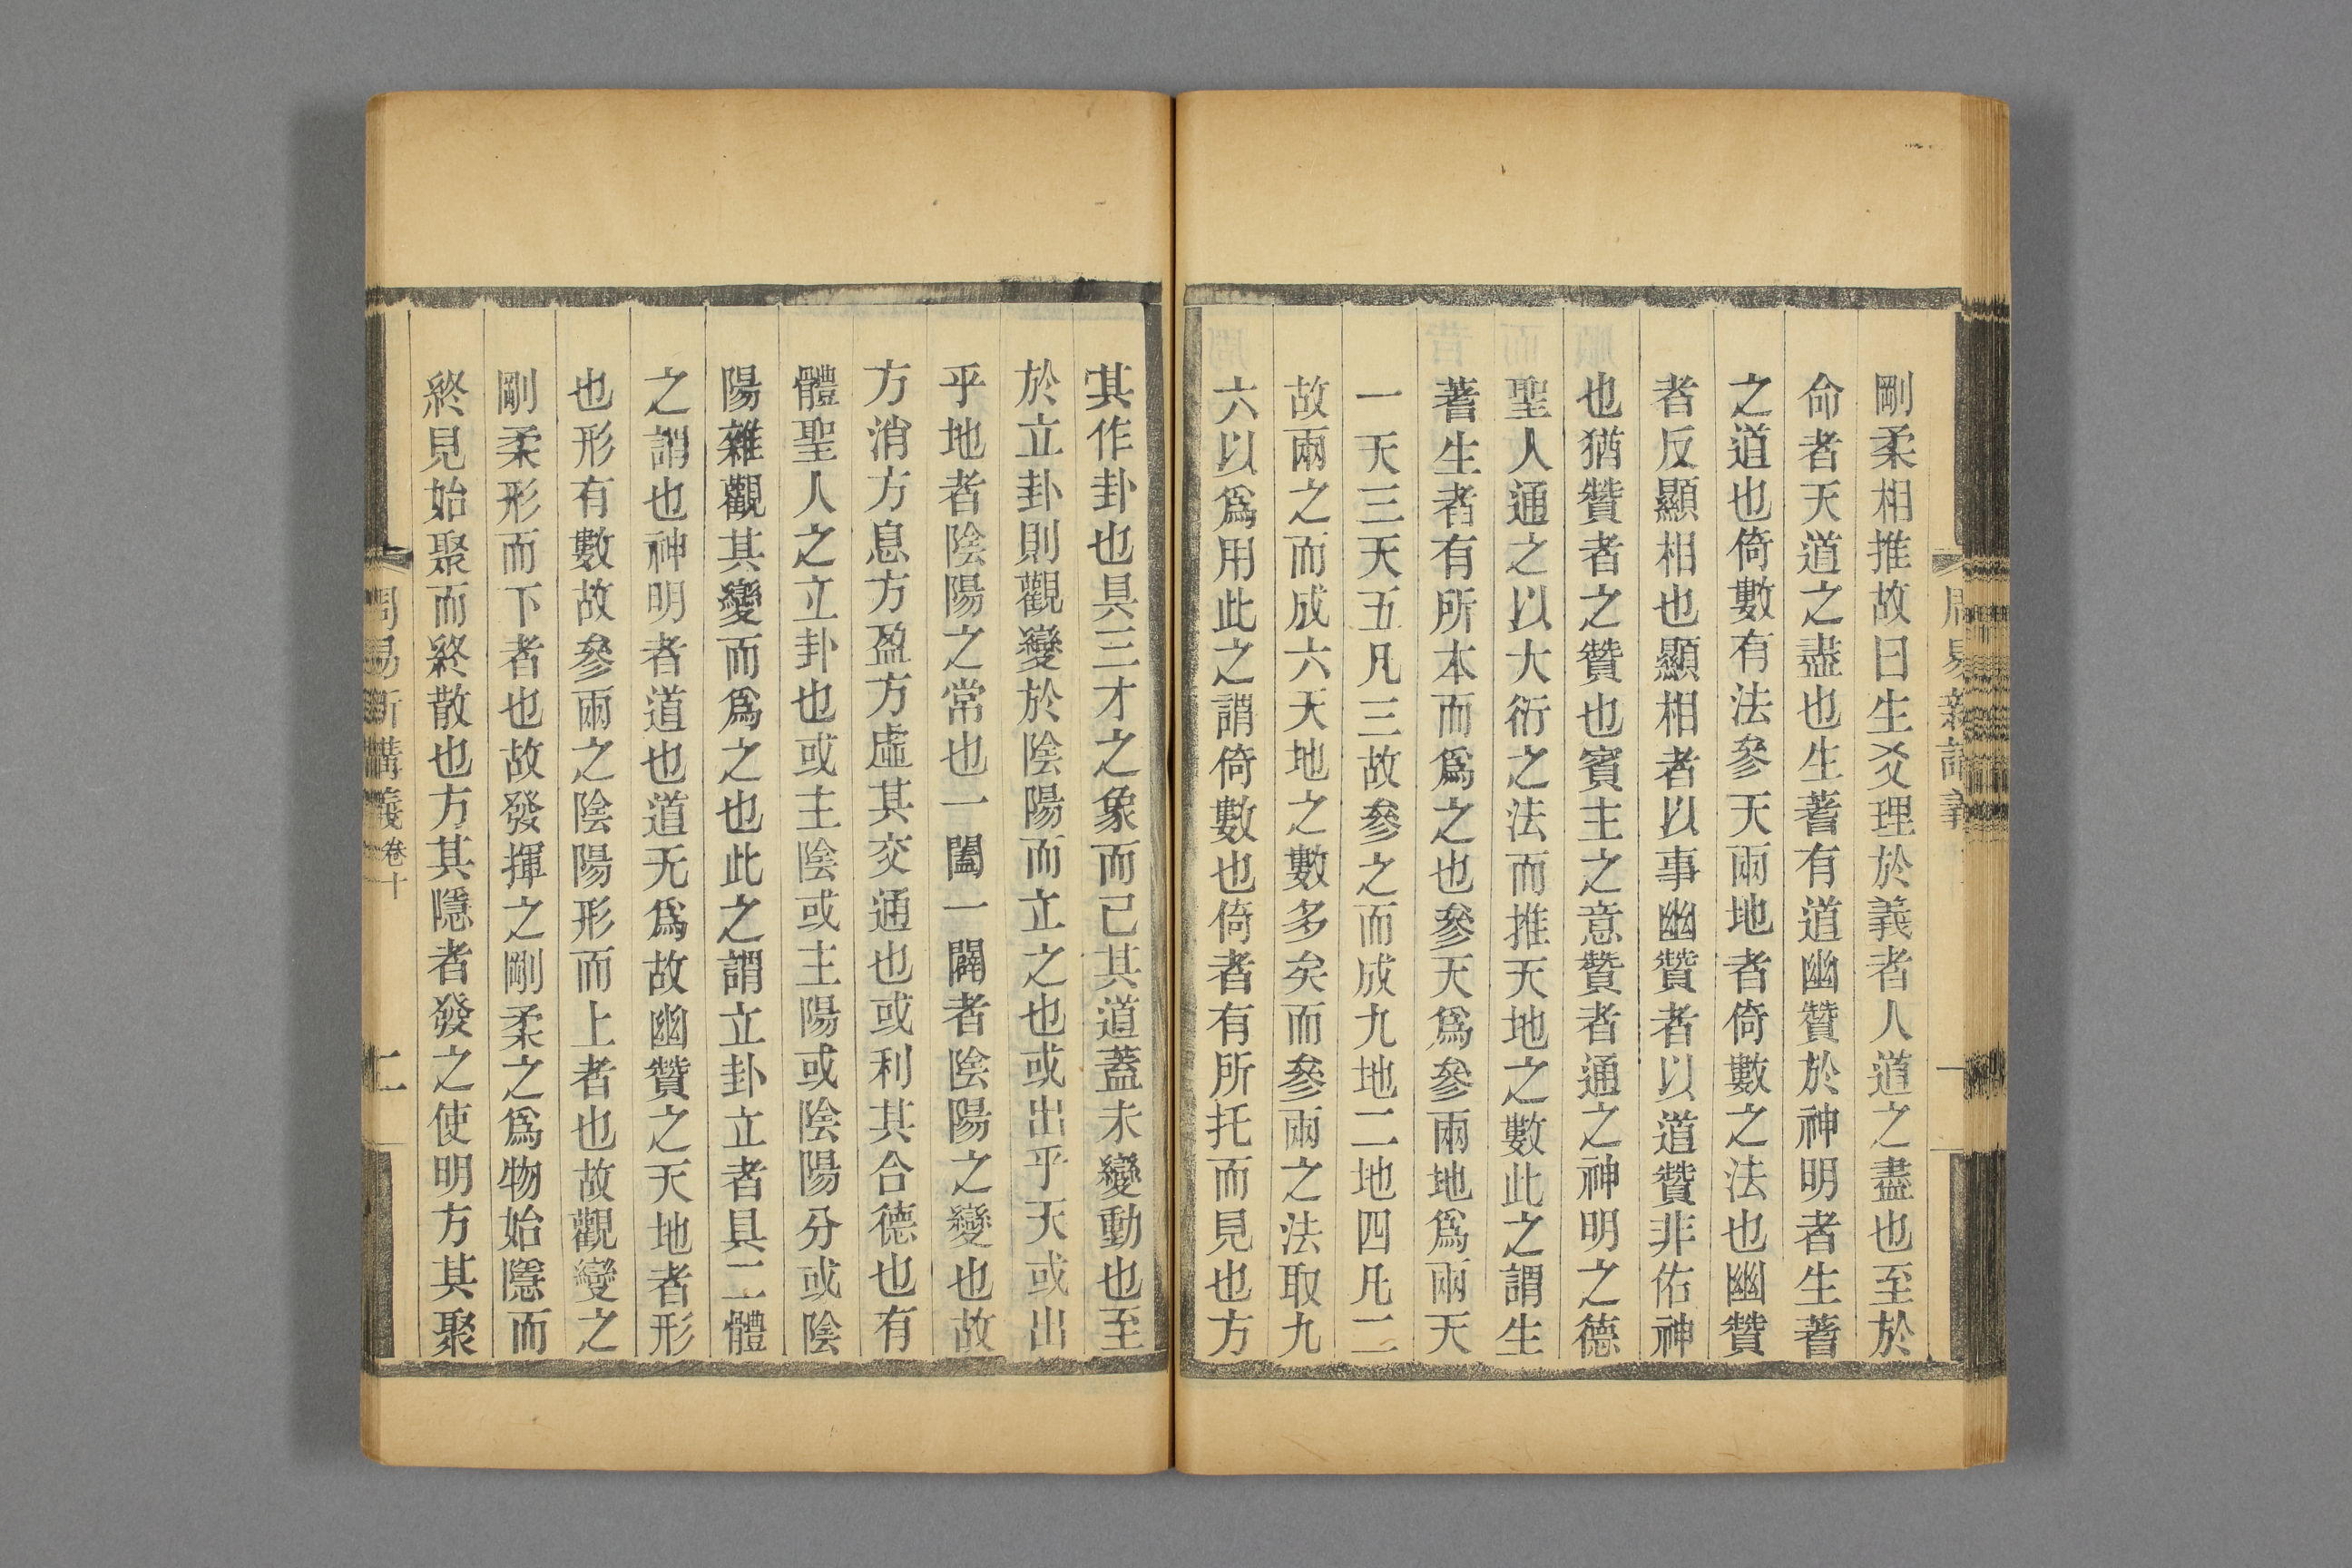 剛柔相推故曰生爻理於義者人道之盡也至於
命者天道之盡也生蓍有道幽贊於神明者生蓍
之道也倚數有法參天兩地者倚數之法也幽贊
者反顯相也顯相者以事幽贊者以道贊非佑神
也猶贊者之贊也賓主之意贊者通之神明之德
聖人通之以大衍之法而推天地之數此之謂生
蓍生者有所本而爲之也參天爲參兩地爲兩天
一天三天五凡三故參之而成九地二地四凡二
故兩之而成六天地之數多矣而參兩之法取九
六以爲用此之謂倚數也倚者有所托而見也方
其作卦也具三才之象而已其道蓋未變動也至
於立卦則觀變於陰陽而立之也或出乎天或出
乎地者陰陽之常也一闔一闢者陰陽之變也故
方消方息方盈方虛其交通也或利其合德也有
體聖人之立卦也或主陰或主陽或陰陽分或陰
陽雜觀其變而爲之也此之謂立卦立者具二體
之謂也神明者道也道无爲故幽贊之天地者形
也形有數故參兩之陰陽形而上者也故觀變之
剛柔形而下者也故發揮之剛柔之爲物始隱而
終見始聚而終散也方其隱者發之使明方其聚
周易新講義卷十
二